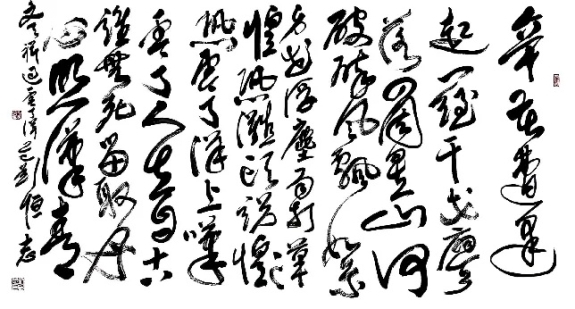 辛苦遭逢
起一經干戈寥
落四周星山河
破碎風飄絮
身世浮雨打萍
惶恐灘頭說惶
恐零丁洋嘆
零丁人生自古
誰無死留取丹
心照汗青
文天祥過零丁洋 彭恒志